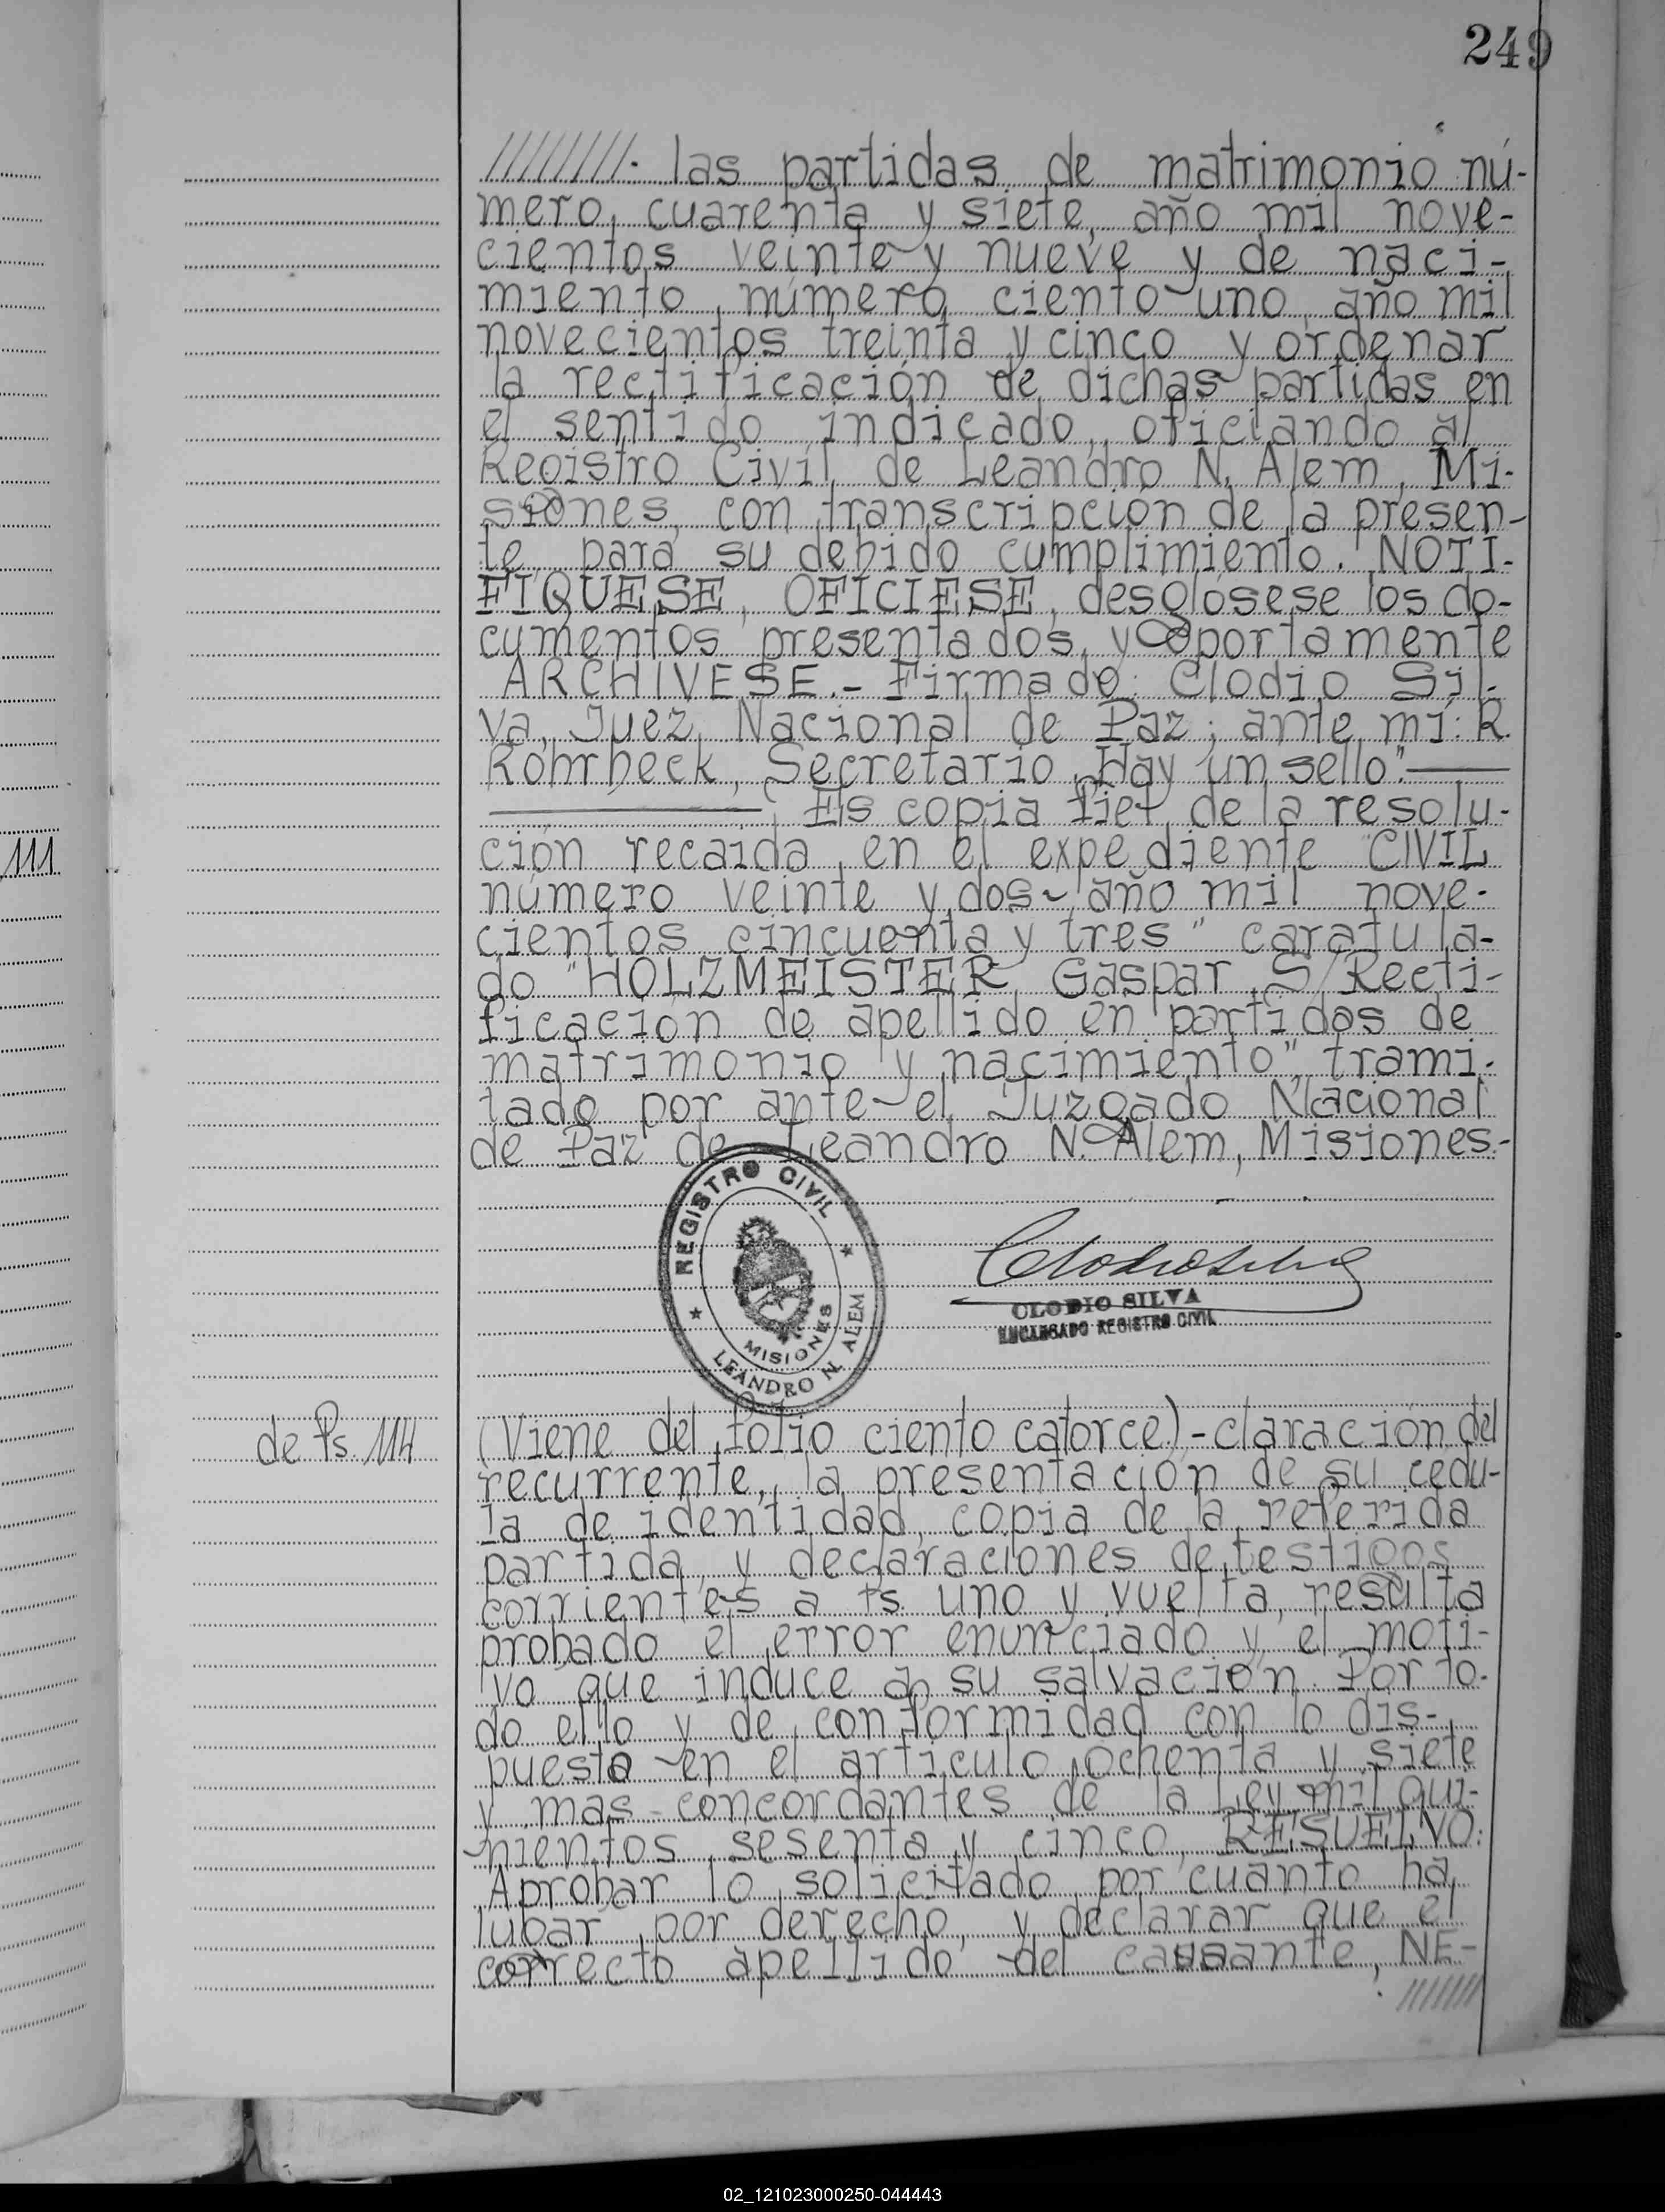 249
////////. las partidas de matrimonio nú-
mero cuarenta y siete, año mil nove-
cientos veinte y nueve y de naci-
miento número ciento uno año mil
novecientos treinta y cinco y ordenar
la rectificación de dichas partidas en
el sentido indicado, oficiando al
Registro Civil de Leandro N. Alem, Mi-
siones, con transcripción de la presen-
te para su debido cumplimiento. NOTI-
FIQUESE, OFICIESE, desglósese los do-
cumentos presentados y oportamente
ARCHIVESE.- Firmado: Clodio Sil-
va, Juez Nacional de Paz; ante mí: R.
Rohrbeck, Secretario. Hay un sello".
Es copia fiel de la resolu-
111
ción recaída en el expediente CIVIL
número veinte y dos año mil nove-
cientos cincuenta y tres" caratula-
do "HOLZMEISTER, Gaspar S/Recti-
ficación de apellido en partidas de
matrimonio y nacimiento", trami-
tado por ante el Juzgado Nacional
de Paz de Leandro N. Alem, Misiones.-
REGISTRO CIVIL
MISIONES
LEANDRO N. ALEM
Clodio Silva
CLODIO SILVA
ENCARGADO REGISTRO CIVIL
de Fs. 114
(Viene del folio ciento catorce)-claración del
recurrente, la presentación de su cédu-
la de identidad, copia de la referida
partida, y declaraciones de testigos
corrientes a fs. uno y vuelta, resulta
probado el error enunciado y el moti-
vo que induce a su salvación. Por to-
do ello y de conformidad con lo dis-
puesto en el artículo ochenta y siete
y mas concordantes de la Ley mil qui-
nientos sesenta y cinco, RESUELVO:
Aprobar lo solicitado por cuanto ha
lugar por derecho, y declarar que el
correcto apellido del causante, NE-
///////
02_121023000250-044443